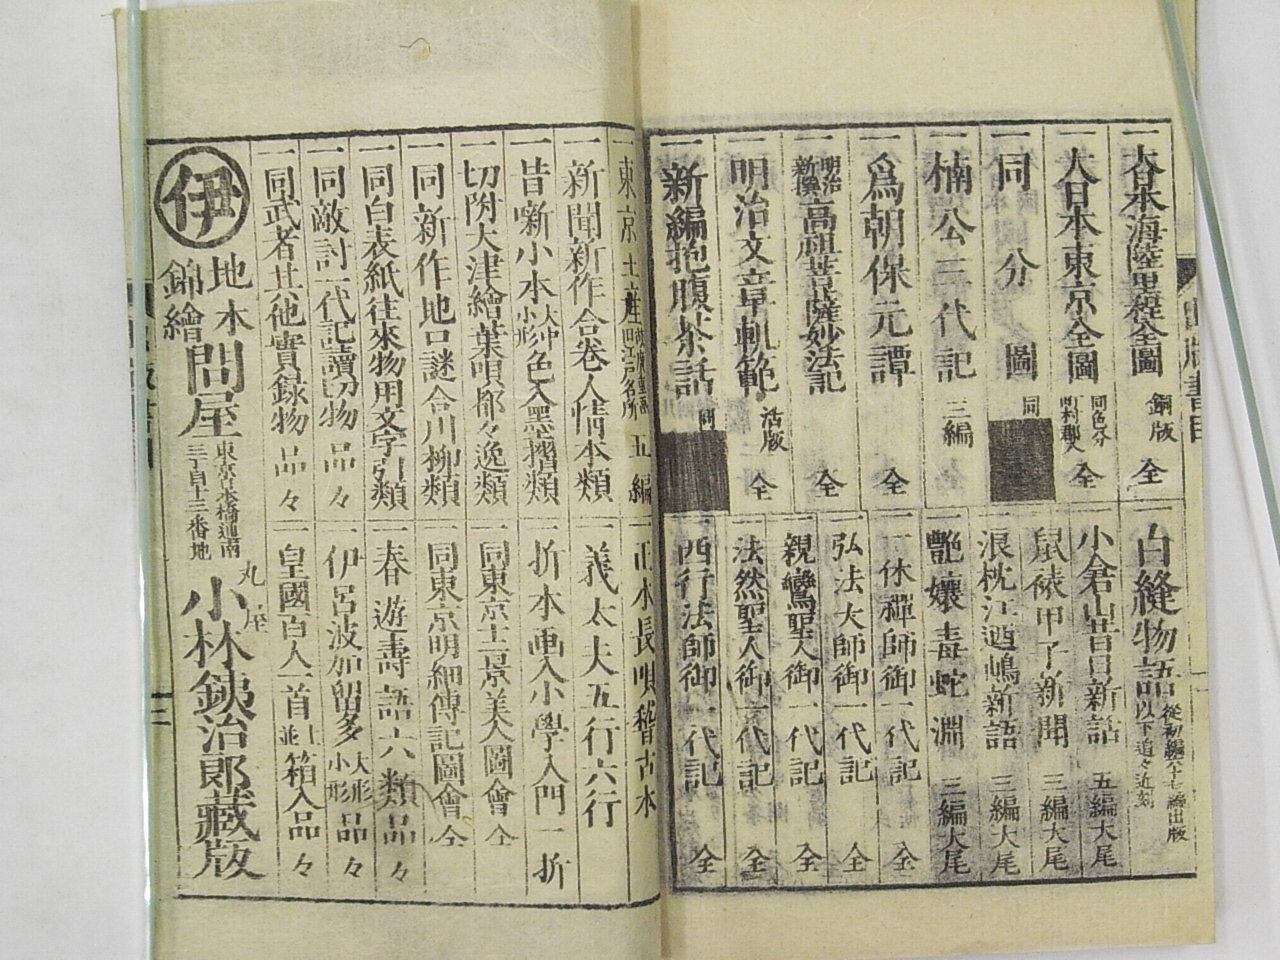 一大日本海陸里程全圖 銅版 全
一大日本東京全圖 同色分 全
一同 分 圖 同
一楠公三代記 三編
一爲朝保元譚 全
一明治新撰高祖菩薩妙法記 全
一明治文章軌範 活版 全
一新編抱腹茶話 同
一白縫物語 從初編六十七編出版 以下追々近刻
一小倉山昔日新話 五編大尾
一鼠裱甲子新聞 三編大尾
一浪枕江廼嶋新語 三編大尾
一艶孃毒蛇淵 三編大尾
一一休禪師御一代記 全
一弘法大師御一代記 全
一親鸞聖人御一代記 全
一法然聖人御一代記 全
一西行法師御一代記 全
一東京土産 旧江戸名所 五編
一新聞新作合卷人情本類
一昔噺小本 大中小形 色入墨摺類
一切附大津繪葉唄都々逸類
一同新作地口謎合川柳類
一同白表紙往來物用文字引類
一同敵討一代記讀切物 品々
一同武者其他實錄物 品々
一正本長唄稽古本
一義太夫五行六行
一折本画入小學入門一折
一同東京十二景美人圖會 全
一同東京明細傳記圖會 全
一春遊壽語六類品々
一伊呂波加留多 大形小形 品々
一皇國百人一首 並上 箱入品々
伊
地本
錦繪
問屋
東京日本橋通南
三丁目十三番地
丸屋
小林銕治郎藏版
三